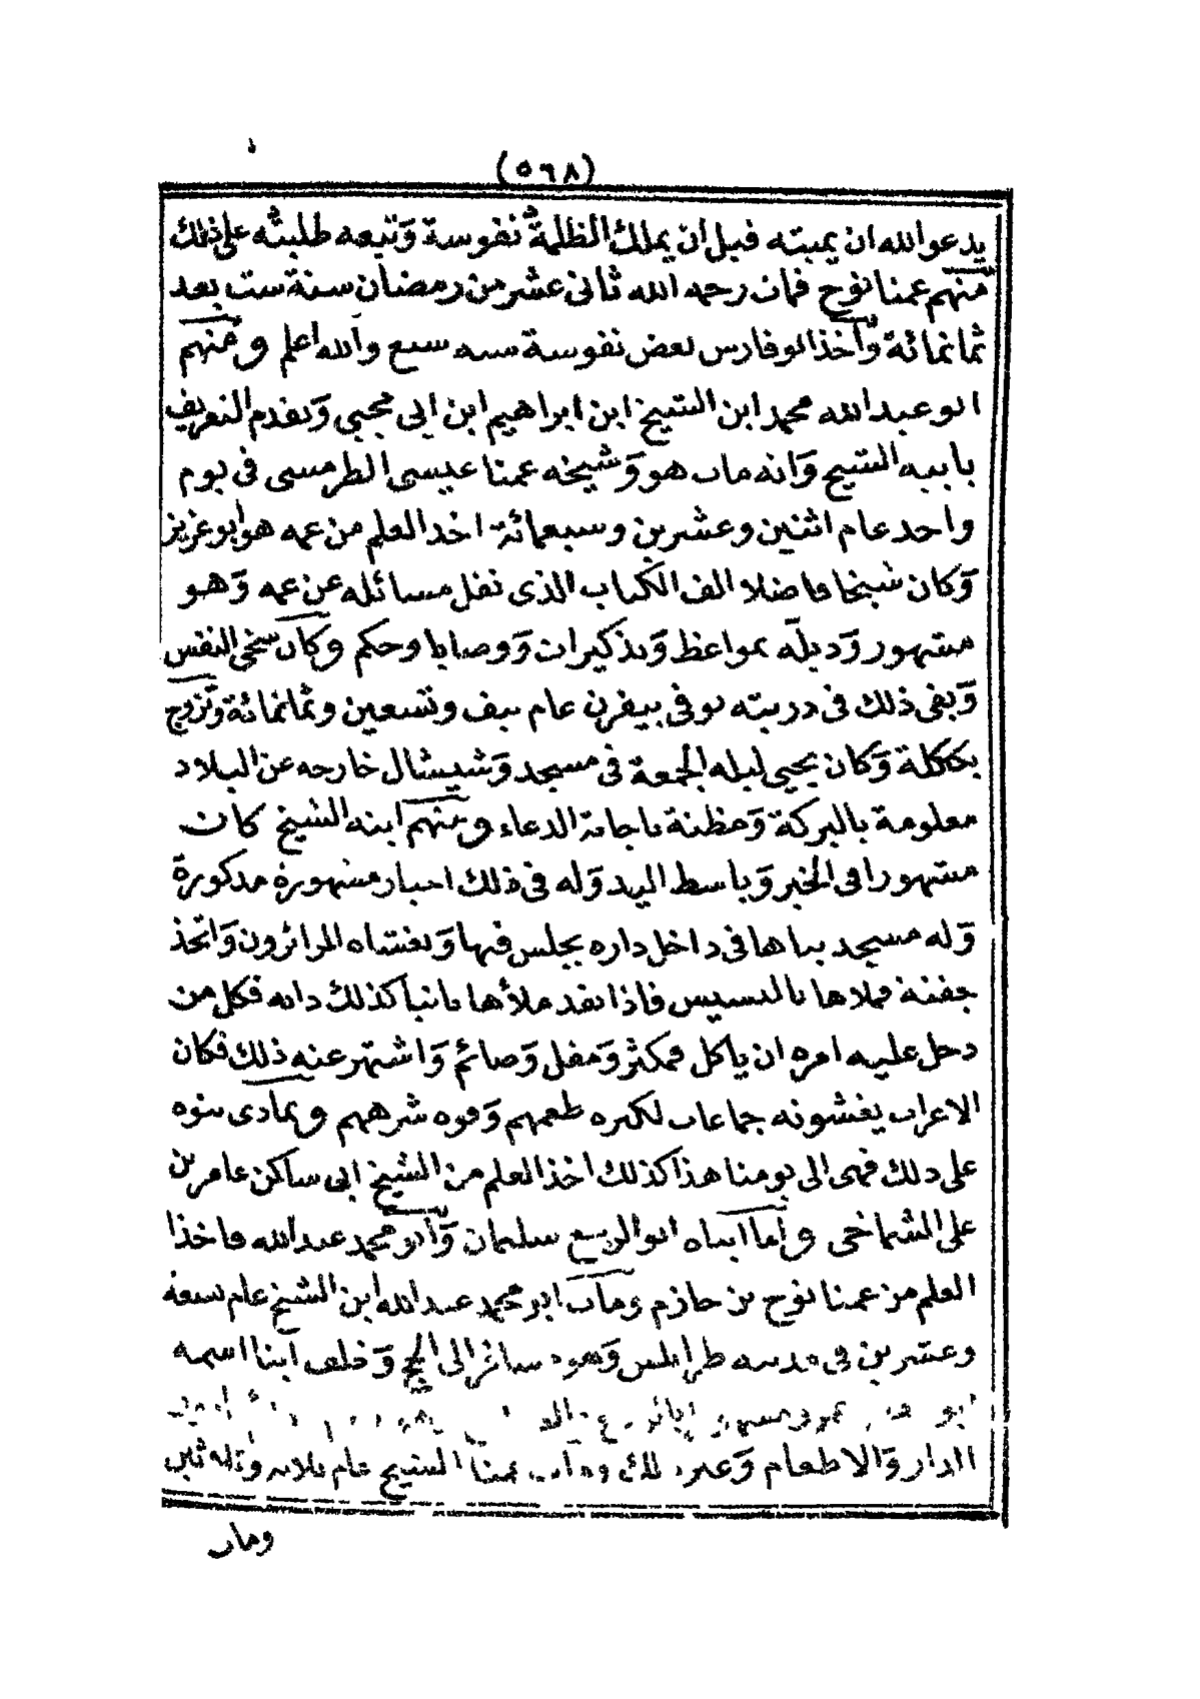 (٥٦٨)
يدعو الله ان يميته قبل ان يملك الظلمة نفوسة وتبعه طلبته على ذلك
منهم عمنا نوح فمات رحمه الله ثانى عشر من رمضان سنة ست بعد
ثمانمائة وأخذ ابو فارس بعض نفوسة سنه سبع والله اعلم ومنهم
ابو عبد الله محمد ابن الشيخ ابن ابراهيم ابن ابى يحيى وتقدم التعريف
بابيه الشيخ وانه مات هو وشيخه عمنا عيسى الطرمسى فى يوم
واحد عام اثنين وعشرين وسبعمائة اخذ العلم من عمه هو ابو عزيز
وكان شيخا فاضلا الف الكتاب الذى نقل مسائله عن عمه وهو
مشهور وذيله بمواعظ وتذكيرات ووصايا وحكم وكان سخى النفس
وبقى ذلك فى دريته توفى بيفرن عام نيف وتسعين وثمانمائة وتزوج
بككلة وكان يحيى ليله الجمعة فى مسجد وشيشال خارجه عن البلاد
معلومة بالبركة ومظنة باجابة الدعاء ومنهم ابنه الشيخ كان
مشهورا فى الخير وباسط اليد وله فى ذلك اخبار مشهورة مذكورة
وله مسجد بناها فى داخل داره يجلس فيها ويغشاه الزائرون واتخذ
جفنة فملاها بالبسيس فاذا نفد ملأها ثانيا كذلك دابه فكل من
دخل عليه امره ان ياكل فمكثر ومقل وصائم واشتهر عنه ذلك فكان
الاعراب يغشونه جماعات لكثره طعمهم وقوه شرههم وتمادى بنوه
على ذلك فهى الى يومنا هذا كذلك اخذ العلم من الشيخ ابى ساكن عامر بن
على الشماخى وأما ابناه ابو الربيع سليمان وأبو محمد عبد الله فاخذا
العلم من عمنا نوح بن حازم ومات ابو محمد عبد الله ابن الشيخ عام تسعة
وعشرين فى مدينه طرابلس وهو سائر الى الحج وخلف ابنا اسمه
الدار والاطعام وغير ذلك ومات عمنا الشيخ عام ثلاثه وثلاثين
ومات